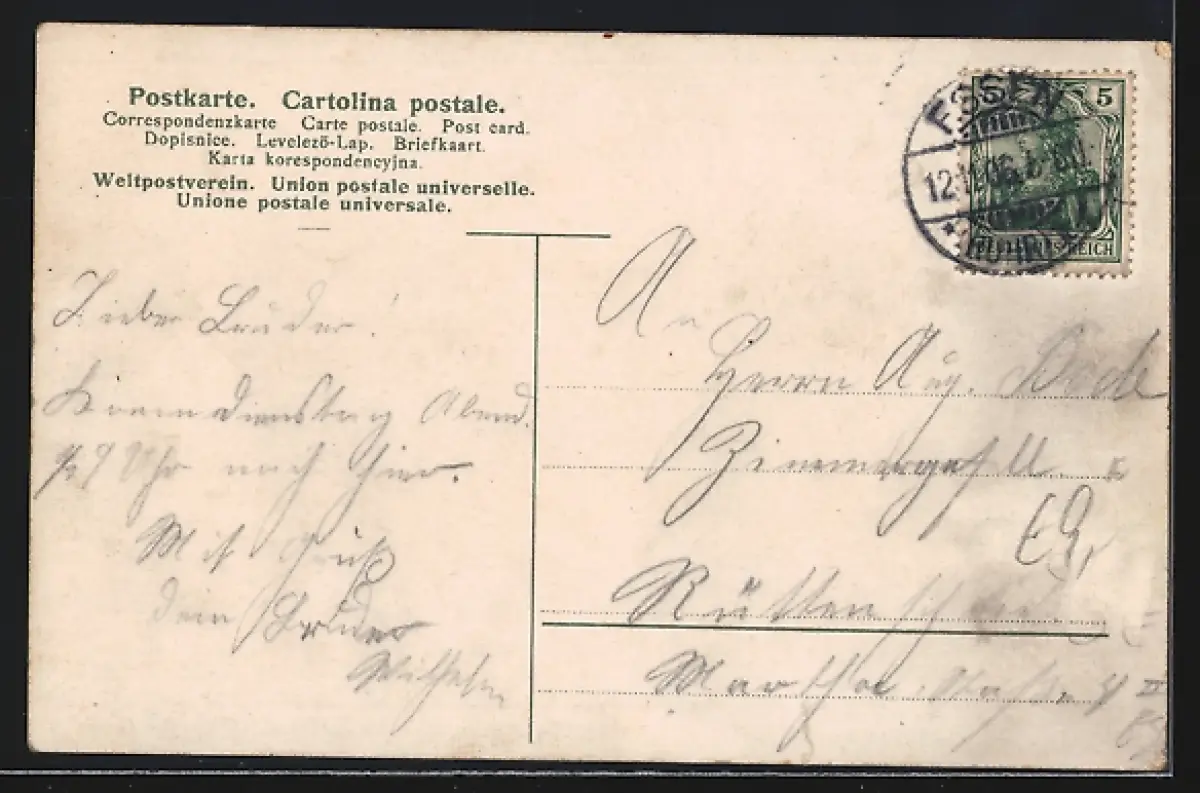 Postkarte. Cartolina postale.
Correspondenzkarte Carte postale. Post card.
Dopisnice. Levelező-Lap. Briefkaart.
Karta korespondencyjna.
Weltpostverein. Union postale universelle.
Unione postale universale.
ESSEN
12.11.06
5
DEUTSCHES REICH
Lieber Bruder!
Komm Dienstag Abend
1/2 9 Uhr nach hier.
Mit Gruß
dein Bruder
Wilhelm
An
Herrn Aug.
Zimmergesell
Rüttenscheid